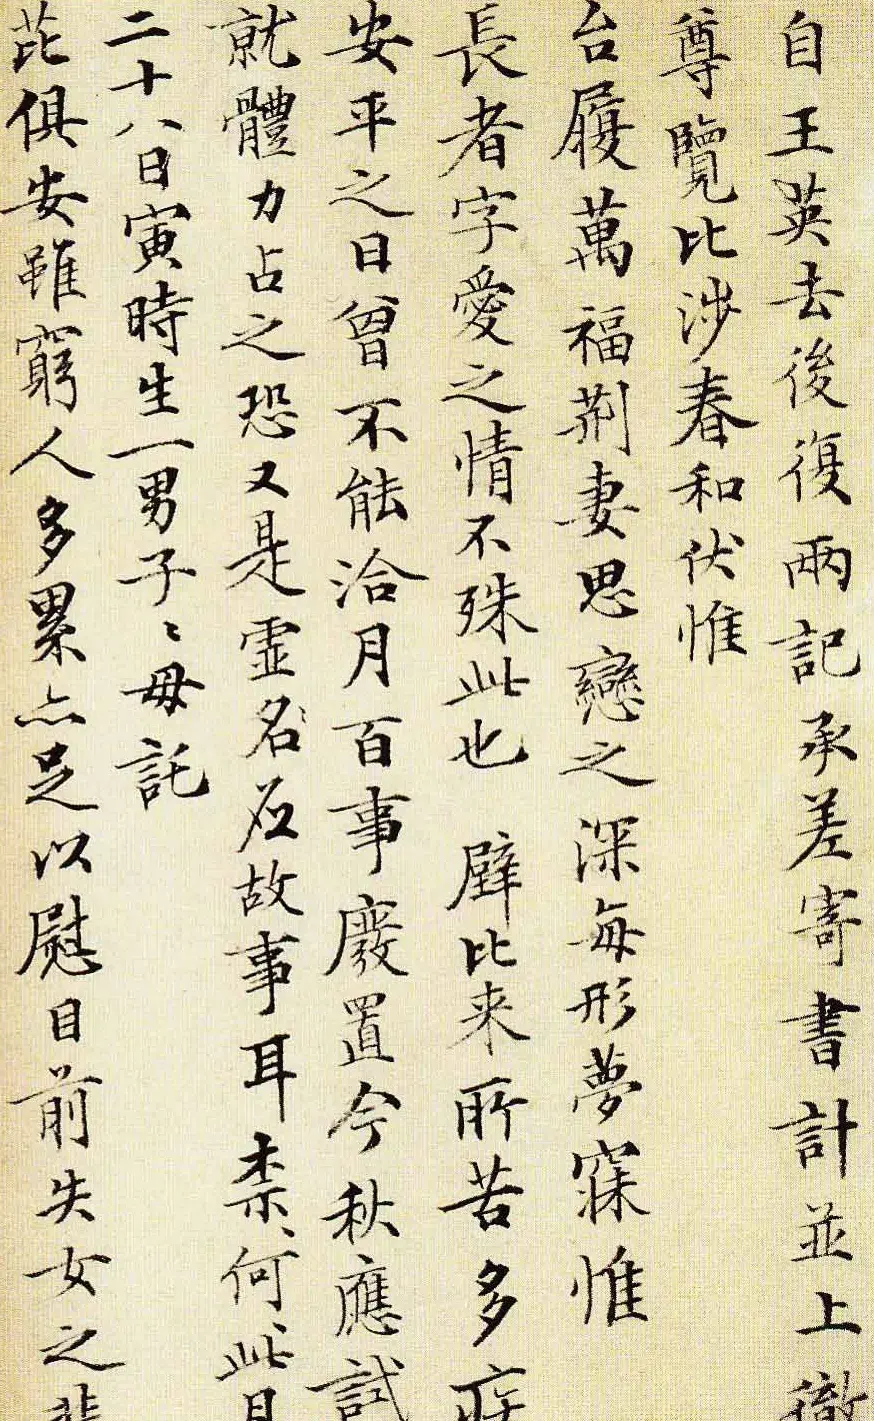 自王英去後復兩記承差寄書計並上徹
尊覽比涉春和伏惟
台履萬福荊妻思戀之深每形夢寐惟
長者字愛之情不殊此也 璧比来所苦多
安平之日曾不能洽月百事廢置今秋應試
就體力占之恐又是虛名应故事耳柰何此月
二十八日寅時生一男子〻母託
芘俱安雖窮人多累亦足以慰目前失女之悲